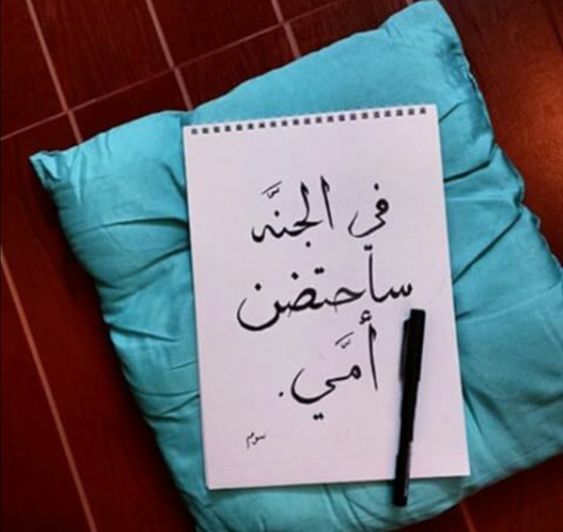 في الجنَّه
سأحتضن
أمَّي.
سوم